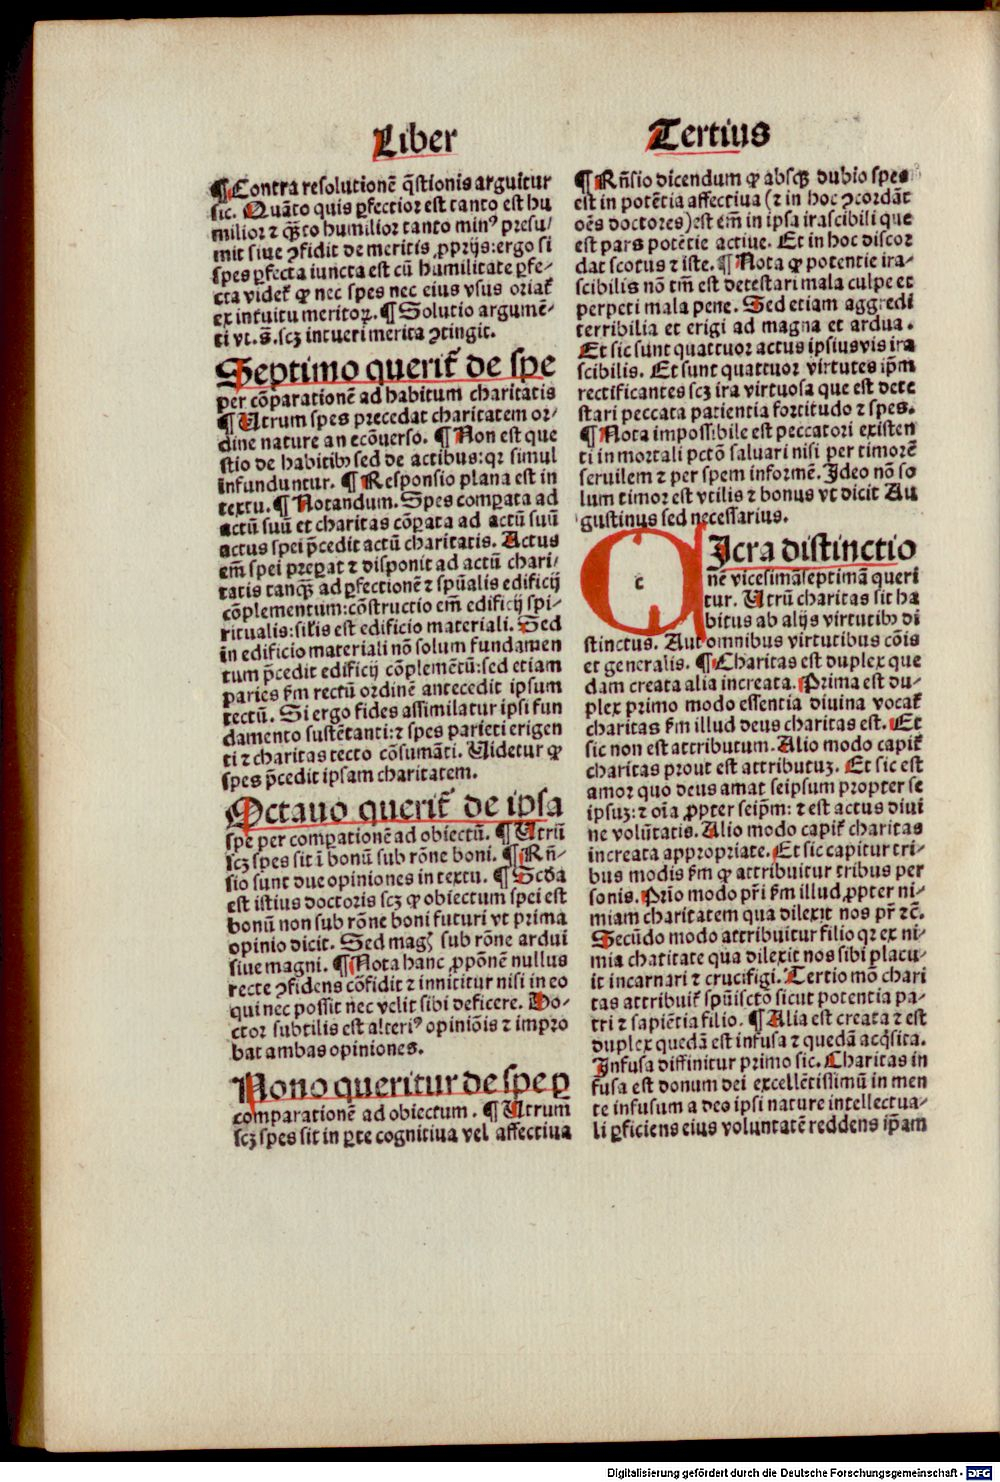 Liber
Tertius
¶ Contra resolutionē q̄stionis arguitur
sic. Quāto quis ꝑfectior est tanto est hu
milior ⁊ qᷓꝫto humilior tanto minꝰ presu/
mit siue ꝯfidit de meritis ꝓprijs: ergo si
spes ꝑfecta iuncta est cū humilitate ꝑfe⸗
cta videt̄ ꝙ nec spes nec eius vsus oriat̄
ex intuitu meritoꝝ. ¶ Solutio argumē⸗
ti vt. s̄. scꝫ intueri merita ꝯtingit.
Septimo querit̄ de spe
per cōparationē ad habitum charitatis
¶ Utrum spes precedat charitatem or⸗
dine nature an ecōuerso. ¶ Non est que
stio de habitibꝰ sed de actibus: qꝛ simul
infunduntur. ¶ Responsio plana est in
textu. ¶ Notandum. Spes comꝑata ad
actū suū et charitas cōꝑata ad actū suū
actus spei p̄cedit actū charitatis. Actus
em̄ spei preꝑat ⁊ disponit ad actū chari⸗
tatis tanqᷓꝫ ad ꝑfectionē ⁊ spūalis edificij
cōplementum: cōstructio em̄ edificij spi⸗
ritualis: sil̄is est edificio materiali. Sed
in edificio materiali nō solum fundamen
tum p̄cedit edificij cōplemētū: sed etiam
paries ẜm rectū ordinē antecedit ipsum
tectū. Si ergo fides assimilatur ipsi fun
damento sustētanti: ⁊ spes parieti erigen
ti ⁊ charitas tecto cōsumāti. Uidetur ꝙ
spes p̄cedit ipsam charitatem.
Octauo querit̄ de ipsa
spe per comꝑationē ad obiectū. ¶ Utrū
scꝫ spes sit ī bonū sub rōne boni. ¶ Rn̄⸗
sio sunt due opiniones in textu. ¶ Scd̄a
est istius doctoris scꝫ ꝙ obiectum spei est
bonū non sub rōne boni futuri vt prima
opinio dicit. Sed magꝭ sub rōne ardui
siue magni. ¶ Nota hanc ꝓpōnē nullus
recte ꝯfidens cōfidit ⁊ innititur nisi in eo
qui nec possit nec velit sibi deficere. Do⸗
ctor subtilis est alteriꝰ opiniōis ⁊ impro
bat ambas opiniones.
Nono queritur de spe ꝑ
comparationē ad obiectum. ¶ Utrum
scꝫ spes sit in ꝑte cognitiua vel affectiua
¶ Rn̄sio dicendum ꝙ absqꝫ dubio spes
est in potētia affectiua (⁊ in hoc ꝯcordāt
oēs doctores) est em̄ in ipsa irascibili que
est pars potētie actiue. Et in hoc discor
dat scotus ⁊ iste. ¶ Nota ꝙ potentie ira⸗
scibilis nō tm̄ est detestari mala culpe et
perpeti mala pene. Sed etiam aggredi
terribilia et erigi ad magna et ardua.
Et sic sunt quattuor actus ipsius vis ira
scibilis. Et sunt quattuor virtutes ip̄m
rectificantes scꝫ ira virtuosa que est dete
stari peccata patientia fortitudo ⁊ spes.
¶ Nota impossibile est peccatori existen
ti in mortali pctō saluari nisi per timorē
seruilem ⁊ per spem informē. Ideo nō so
lum timor est vtilis ⁊ bonus vt dicit Au
gustinus sed necessarius.
CIcra distinctio
nē vicesimāseptimā queri
tur. Utrū charitas sit ha
bitus ab alijs virtutibꝰ di
stinctus. Aut omnibus virtutibus cōis
et generalis. ¶ Charitas est duplex que
dam creata alia increata. Prima est du⸗
plex primo modo essentia diuina vocat̄
charitas ẜm illud deus charitas est. Et
sic non est attributum. Alio modo capit̄
charitas prout est attributuꝫ. Et sic est
amor quo deus amat seipsum propter se
ipsuꝫ: ⁊ oīa ꝓpter seip̄m: ⁊ est actus diui
ne volūtatis. Alio modo capit̄ charitas
increata appropriate. Et sic capitur tri⸗
bus modis ẜm ꝙ attribuitur tribus per
sonis. Prīo modo pr̄i ẜm illud ꝓpter ni⸗
miam charitatem qua dilexit nos pr̄ ⁊c̄.
Secūdo modo attribuitur filio qꝛ ex ni⸗
mia charitate qua dilexit nos sibi placu⸗
it incarnari ⁊ crucifigi. Tertio mō chari
tas attribuit̄ spūisctō sicut potentia pa⸗
tri ⁊ sapiētia filio. ¶ Alia est creata ⁊ est
duplex quedā est infusa ⁊ quedā acq̄sita.
Infusa diffinitur primo sic. Charitas in
fusa est donum dei excellētissimū in men
te infusum a deo ipsi nature intellectua⸗
li ꝑficiens eius voluntatē reddens ip̄am
Digitalisierung gefördert durch die Deutsche Forschungsgemeinschaft - DFG